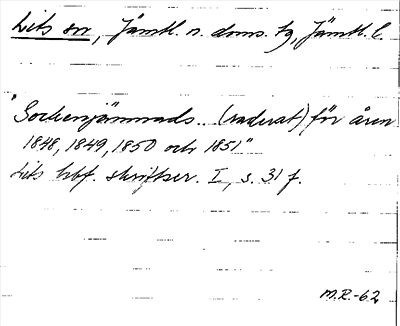 Lits sn, Jämtl. n. doms. tg, Jämtl. l.
"Sockenjämnads.. (raderat) för åren
1848, 1849, 1850 och 1851"
Lits hbf. skriftser. I, s. 31 f.
M.R.-62